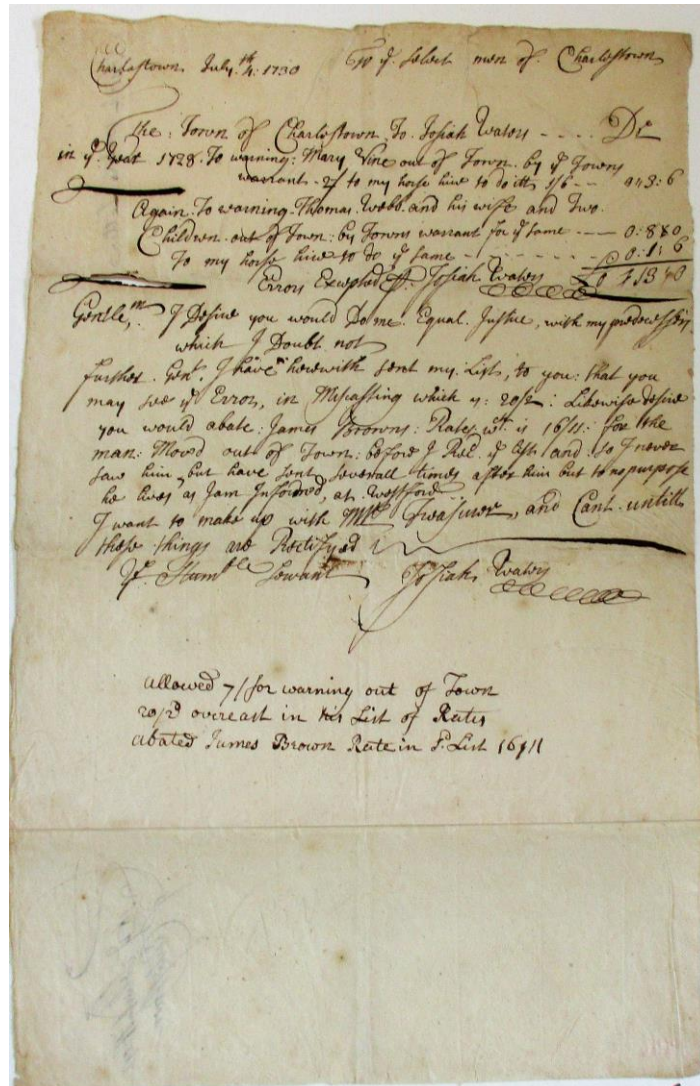 Charlestown July. 4th. 1730 To ye Select men of. Charlestown
The: Town of Charlestown To Josiah Waters - - - - Dr
in ye year 1728. To warning: Mary Vine out of Town. by ye Towns
warrant - 2/ to my horse hire to do itt 1/6 - - 0:3:6
Again. To warning. Thomas. Webb. and his wife and Two.
Children. out of Town: by Towns warrant for ye same - - 0:8:0
To my horse hire to do ye same - - - - - 0:1:6
Errors Excepted Josiah Waters
Gentlem. I Desire you would Do me. Equal. Justice, with my predecessors
which I Doubt not
further. Gent. I have herewith sent my. List, to you: that you
may see ye Error, in Miscasting which is: 20/2: Likewise desire
you would abate: James Browns: Rates wch. is 16/11: for the
man: Mov'd out of Town: before I Recd. ye List and so I never
saw him, but have sent severall times after him but to no purpose
he lives as I am Informed, at Westford
I want to make up with Mr. Treasurer, and Cant. untill
these things are Rectifyed
Yr. Humble Servant Josiah Waters
allowed 7/ for warning out of Town
20/2 overcast in his List of Rates
abated James Brown Rate in List 16/11